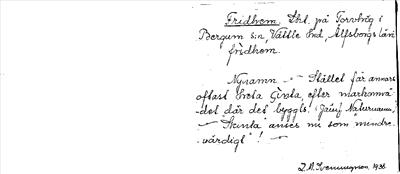 Fridhem. Lht. på Torvhög i
Bergum s:n, Vättle hd, Älfsborgs län
fridhem.
Nynamn — Stället får annars
oftast heta Ginta, efter markområ-
det där det byggts! (Jämf. Naturnamn.)
— Skinta anses nu som "mindre
värdigt"! —
1938